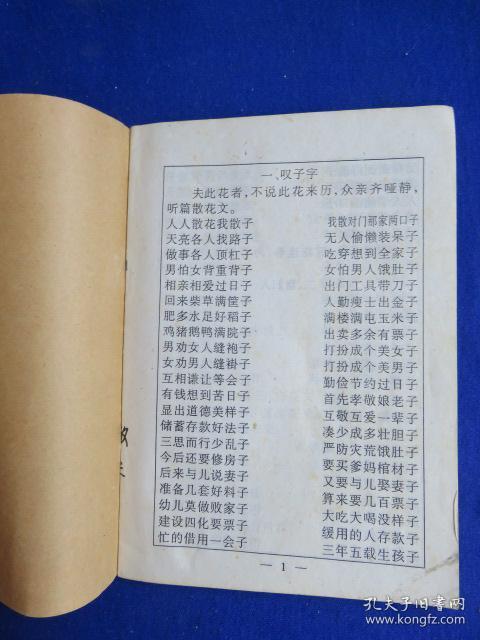 一、叹子字
夫此花者，不说此花来历，众亲齐哑静，
听篇散花文。
人人散花我散子 我散对门那家两口子
天亮各人找路子 无人偷懒装呆子
做事各人顶杠子 吃穿想到全家子
男怕女背重背子 女怕男人饿肚子
相亲相爱过日子 出门工具带刀子
回来柴草满筐子 人勤瘦土出金子
肥多水足好稻子 满楼满屯玉米子
鸡猪鹅鸭满院子 出卖多余有票子
男劝女人缝袍子 打扮成个美女子
女劝男人缝褂子 打扮成个美男子
互相谦让等会子 勤俭节约过日子
有钱想到苦日子 首先孝敬娘老子
显出道德美样子 互敬互爱一辈子
储蓄存款好法子 凑少成多壮胆子
三思而行少乱子 严防灾荒饿肚子
今后还要修房子 要买爹妈棺材子
后来与儿说妻子 又要与儿娶妻子
准备几套好料子 算来要几百票子
幼儿莫做败家子 大吃大喝没样子
建设四化要票子 缓用的人存款子
忙的借用一会子 三年五载生孩子
— 1 —
孔夫子旧书网
kongfz.com